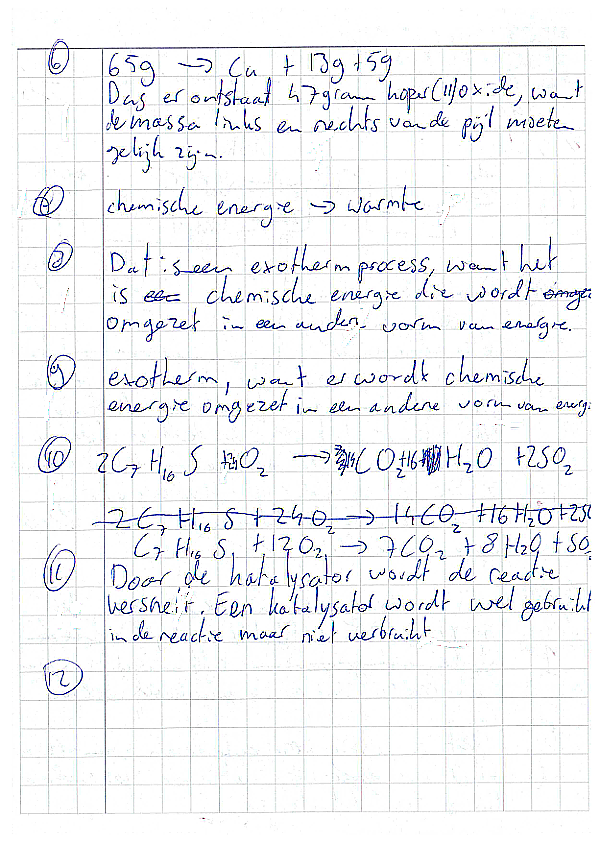 6 65g → Cu + 13g + 5g
Dus er ontstaat 47gram koper(II)oxide, want
de massa links en rechts van de pijl moeten
gelijk zijn.
7 chemische energie → warmte
8 Dat is een exotherm process, want het
is een chemische energie die wordt omge
omgezet in een ander vorm van energie.
9 exotherm, want er wordt chemische
energie omgezet in een andere vorm van energ.
10 2C7 H16 S + 24O2 → 14CO2 + 16 H2O + 2SO2
2C7 H16 S + 24O2 → 14CO2 + 16 H2O + 2SO
C7 H16 S + 12O2 → 7CO2 + 8H2O + SO2
11 Door de katalysator wordt de reactie
versnelt. Een katalysator wordt wel gebruikt
in de reactie maar niet verbruikt
12